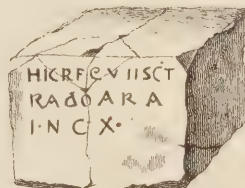 HICRFCVIISCT
RADOARA
I·N C X·